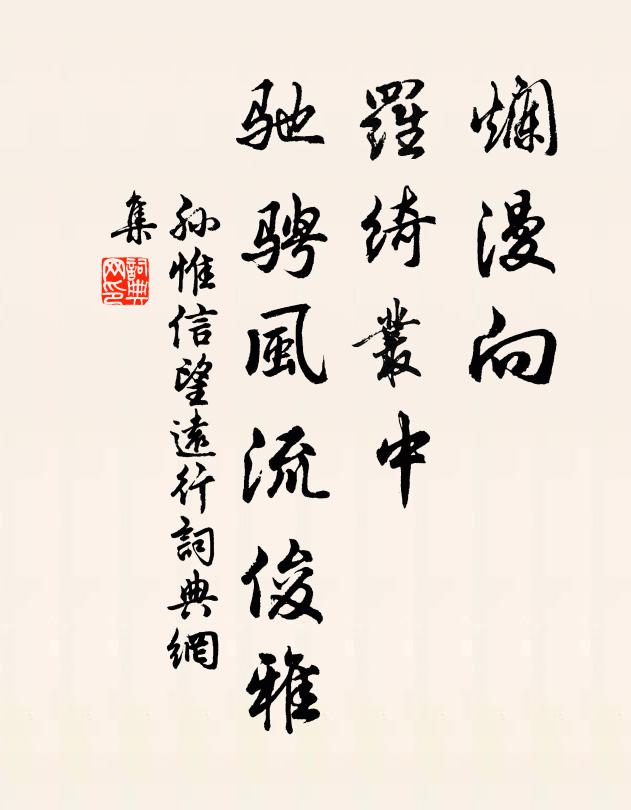 爛漫向
羅綺叢中
馳騁風流俊雅
孙惟信望遠行詞典網
集
詞典
网印